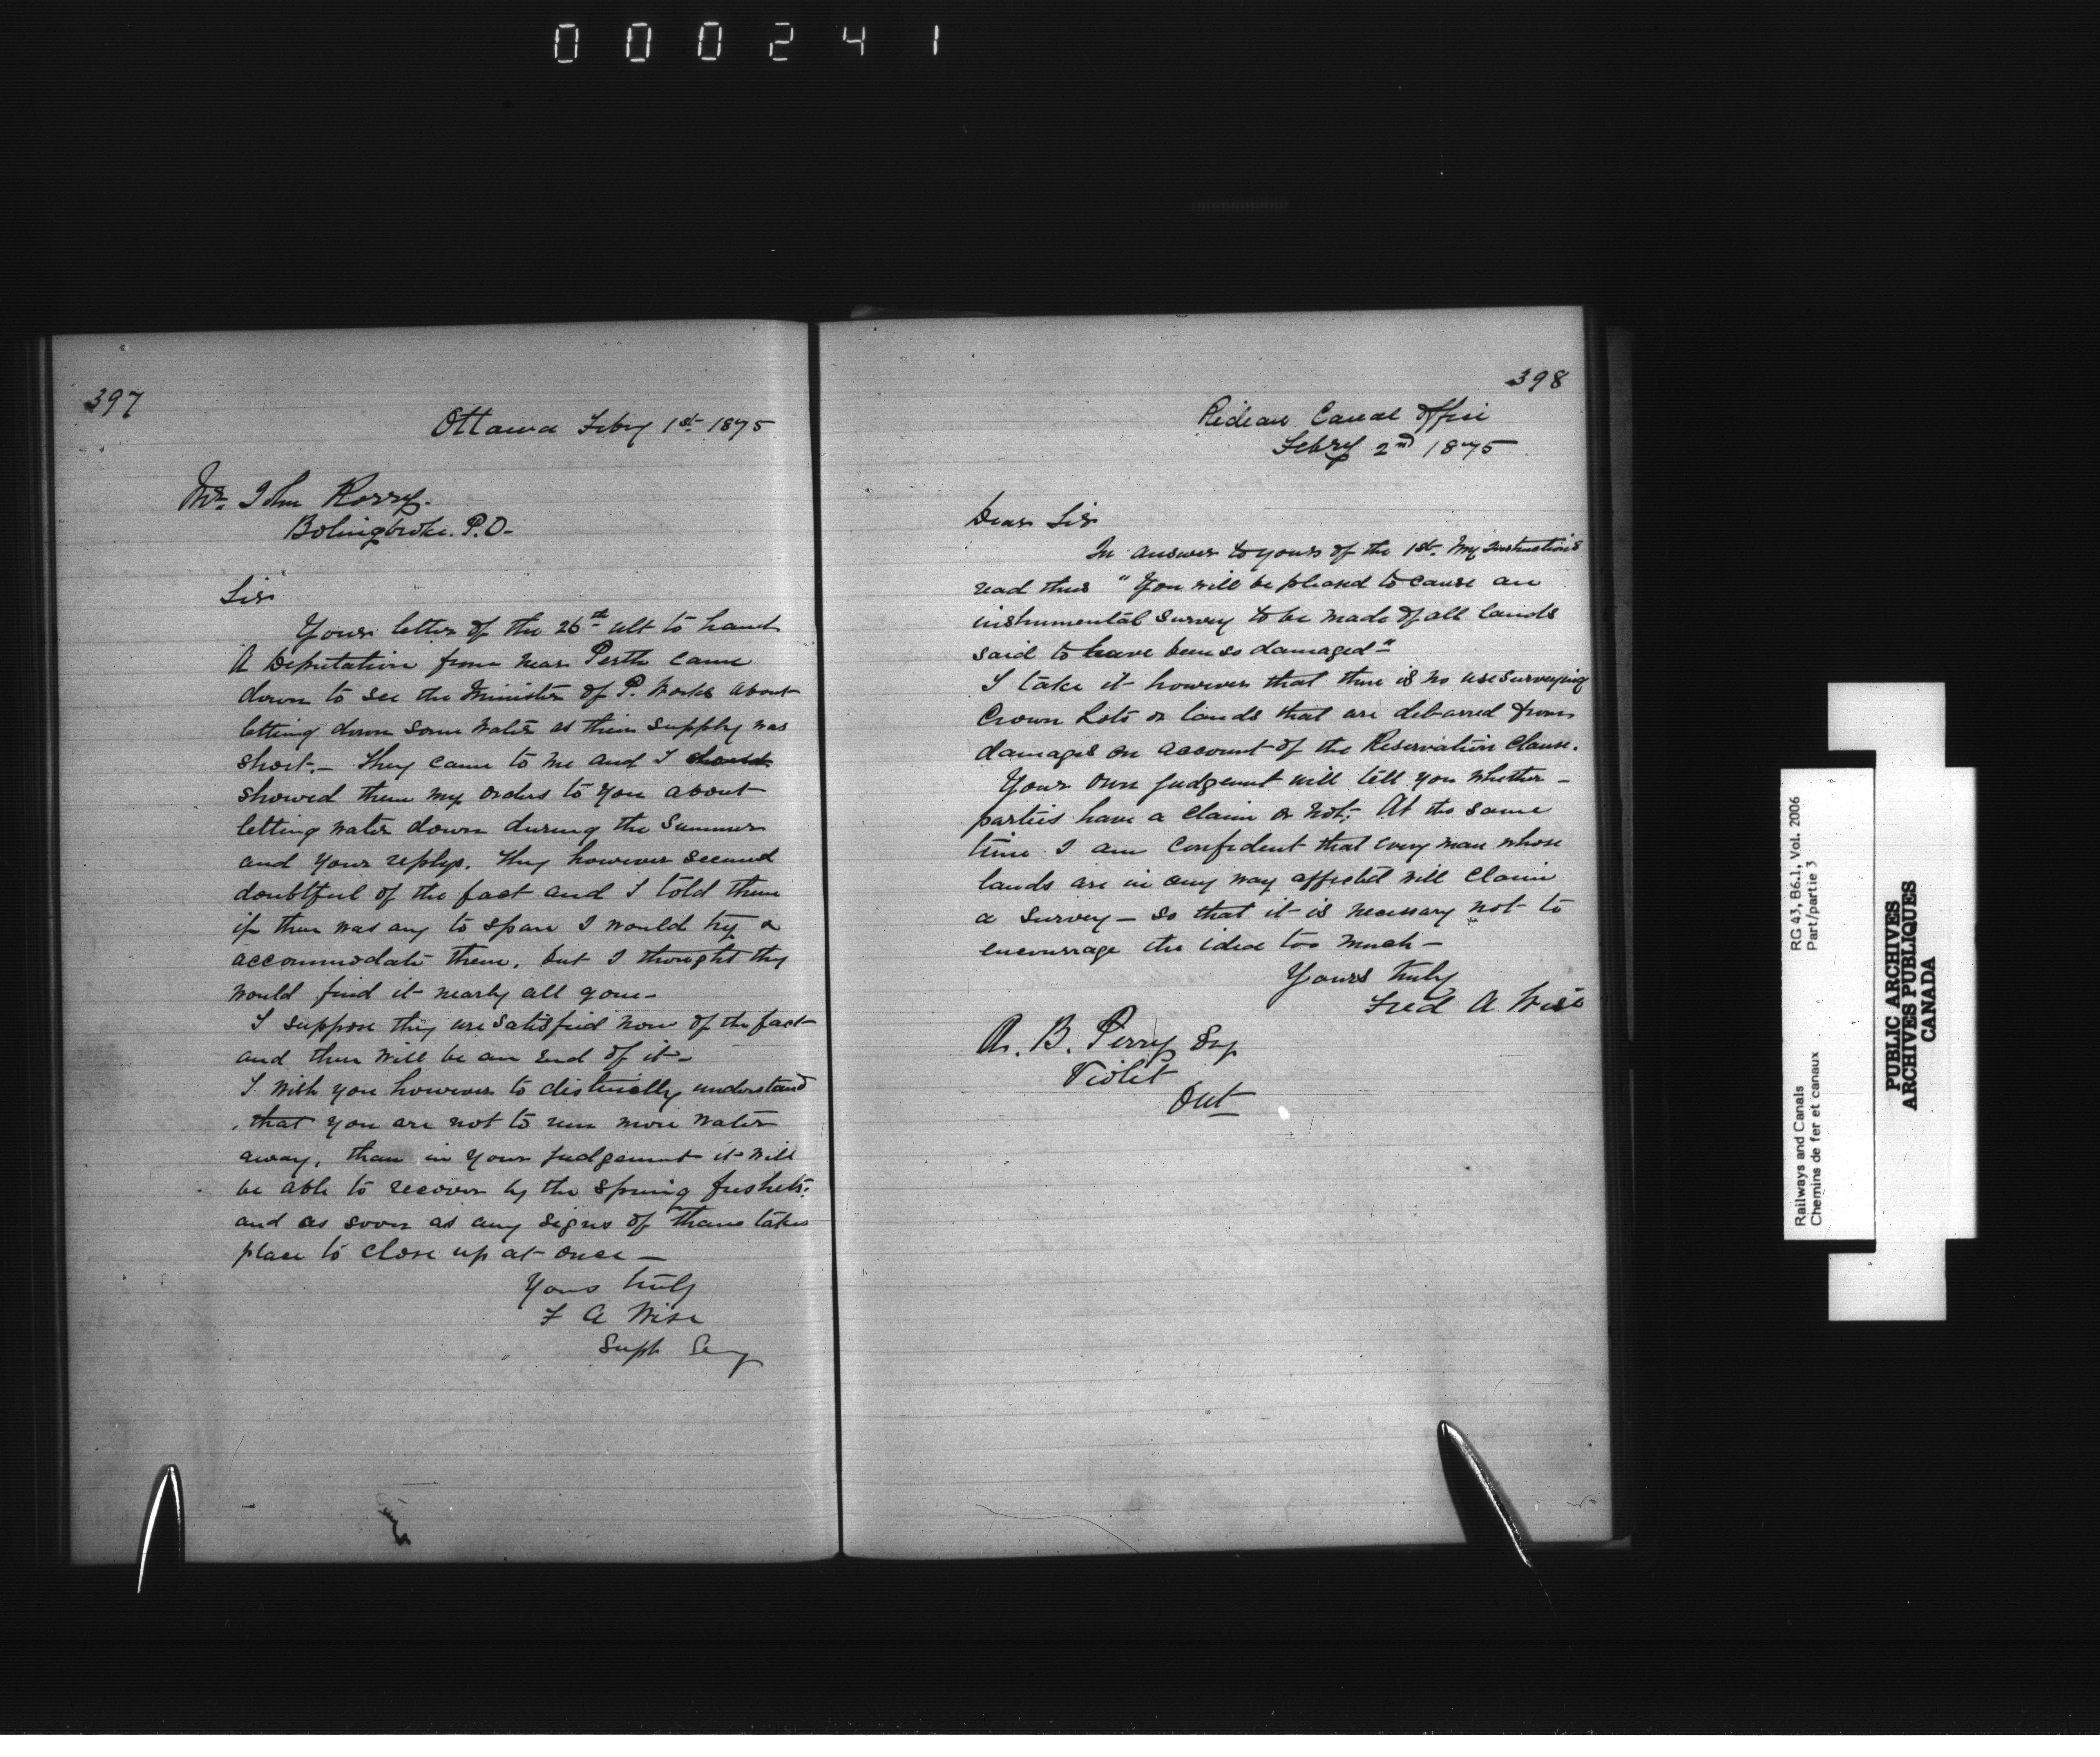 000241
397
Ottawa Feby 1st 1875
Mr. John Korry.
Bolingbroke. P.O.
Sir
Your letter of the 26th ult to hand
A Deputation from near Perth came
down to see the Minister of P. Works about
letting down some water as their supply was
short. - They came to me and I should
showed them my orders to you about
letting water down during the Summer
and your replys. They however seemed
doubtful of the fact and I told them
if there was any to spare I would try &
accommodate them, but I thought they
would find it nearly all gone -
I suppose they are satisfied now of the fact
and there will be an end of it -
I wish you however to distinctly understand
that you are not to run more water
away, than in your judgement it will
be able to recover by the spring freshets.
and as soon as any signs of thaw takes
place to close up at once -
Yours truly
F A Wise
Supt Eng
398
Rideau Canal Office
Febry 2nd 1875
Dear Sir
In answer to yours of the 1st. My instructions
read thus "You will be pleased to cause an
instrumental survey to be made of all lands
said to have been so damaged"
I take it however that there is no use surveying
Crown Lots or lands that are debarred from
damages on account of the Reservation Clause.
Your own judgement will tell you whether -
parties have a claim or not; At the same
time I am confident that every man whose
lands are in any way affected will claim
a survey - so that it is necessary not to
encourrage the idea too much -
Yours truly
Fred A. Wise
A. B. Perry Esq
Violet
Ont
RG 43, B6.1, Vol. 2006
Part/partie 3
Railways and Canals
Chemins de fer et canaux
PUBLIC ARCHIVES
ARCHIVES PUBLIQUES
CANADA